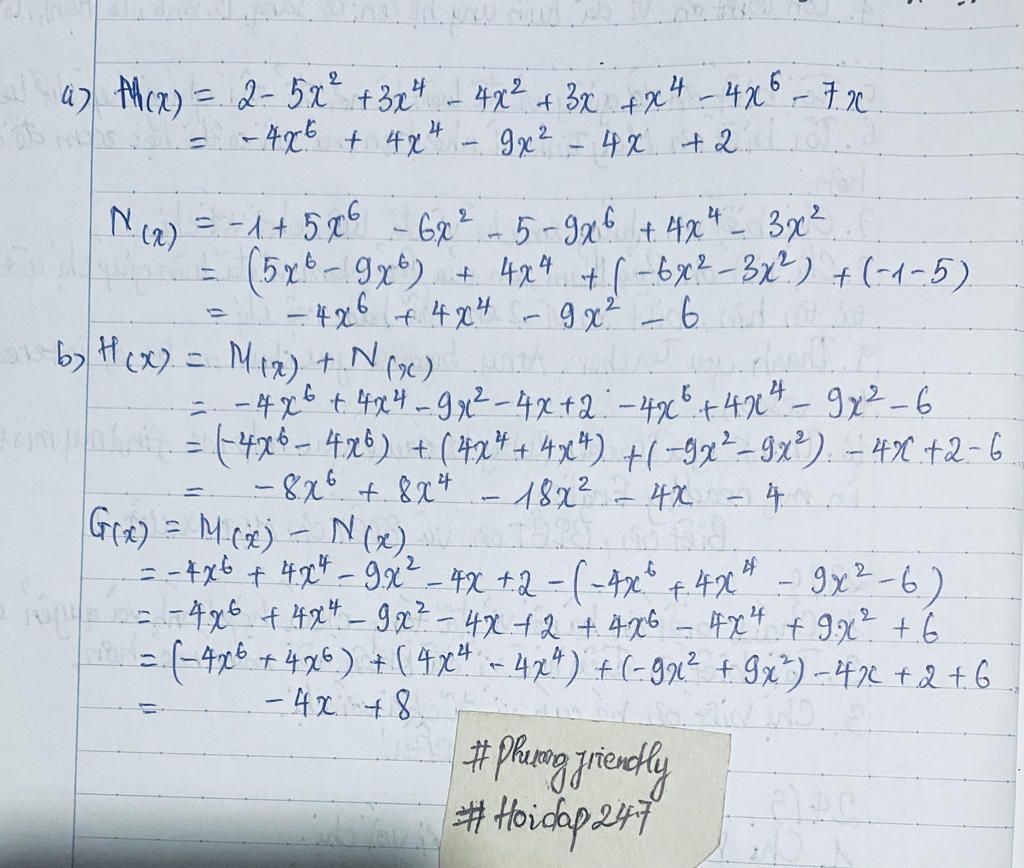 a) M(x) = 2 - 5x² + 3x⁴ - 4x² + 3x + x⁴ - 4x⁶ - 7x
= -4x⁶ + 4x⁴ - 9x² - 4x + 2
N(x) = -1 + 5x⁶ - 6x² - 5 - 9x⁶ + 4x⁴ - 3x²
= (5x⁶ - 9x⁶) + 4x⁴ + (-6x² - 3x²) + (-1-5)
= -4x⁶ + 4x⁴ - 9x² - 6
b) H(x) = M(x) + N(x)
= -4x⁶ + 4x⁴ - 9x² - 4x + 2 - 4x⁶ + 4x⁴ - 9x² - 6
= (-4x⁶ - 4x⁶) + (4x⁴ + 4x⁴) + (-9x² - 9x²) - 4x + 2 - 6
= -8x⁶ + 8x⁴ - 18x² - 4x - 4
G(x) = M(x) - N(x)
= -4x⁶ + 4x⁴ - 9x² - 4x + 2 - (-4x⁶ + 4x⁴ - 9x² - 6)
= -4x⁶ + 4x⁴ - 9x² - 4x + 2 + 4x⁶ - 4x⁴ + 9x² + 6
= (-4x⁶ + 4x⁶) + (4x⁴ - 4x⁴) + (-9x² + 9x²) - 4x + 2 + 6
= -4x + 8
# Phuong friendly
# Hoidap247